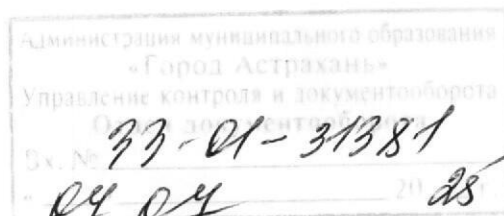 Администрация муниципального образования
«Город Астрахань»
Управление контроля и документооборота
Отдел документооборота
Вх. № 33-01-31381
" 04 07 20 25